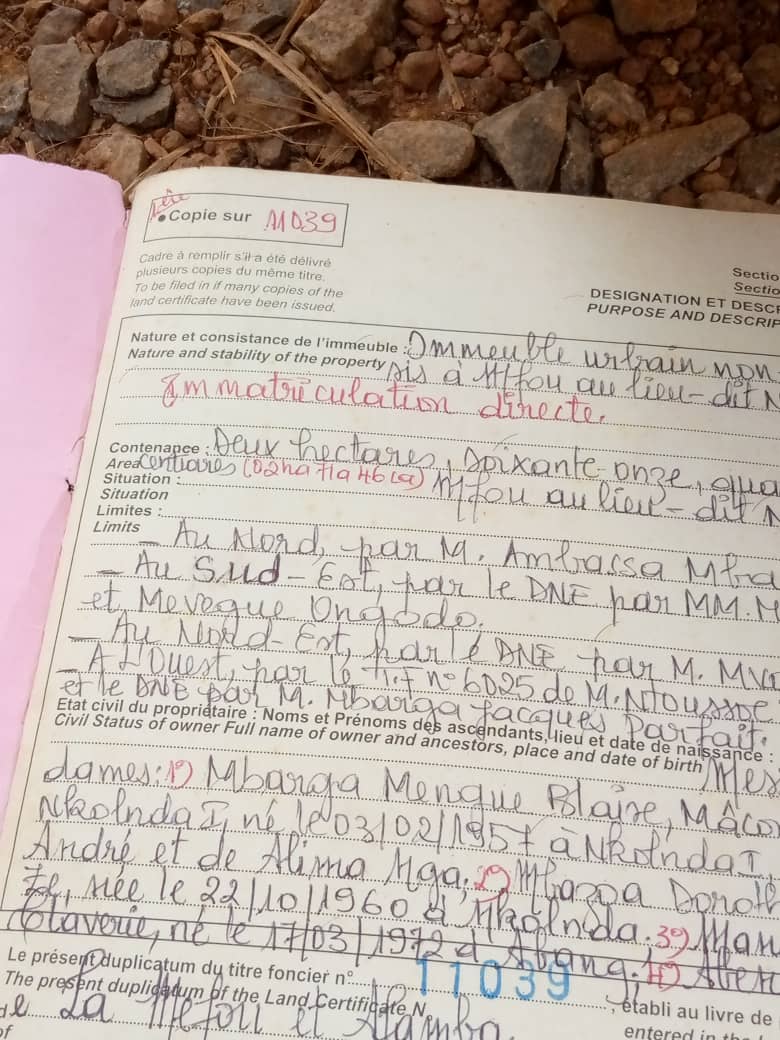 Copie sur 11039
Cadre à remplir s'il a été délivré
plusieurs copies du même titre.
To be filed in if many copies of the
land certificate have been issued.
Sectio
Sectio
DESIGNATION ET DESCR
PURPOSE AND DESCRIP
Nature et consistance de l'immeuble : Immeuble urbain non
Nature and stability of the property sis à Mfou au lieu-dit N
Immatriculation directe.
Contenance : Deux hectares, Soixante-onze, qua
Area centiares (02ha 71a 46ca)
Situation : Mfou au lieu-dit N
Situation
Limites :
Limits
- Au Nord, par M. Ambassa Mba
- Au Sud-Est, par le DNE par MM. M
et Mevogue Ongodo.
- Au Nord-Est, par le DNE par M. Mva
- A L'Ouest, par le T.F n° 6025 de M. Ntousse
et le DNE par M. Mbarga Jacques Parfait.
Etat civil du propriétaire : Noms et Prénoms des ascendants, lieu et date de naissance :
Civil Status of owner Full name of owner and ancestors, place and date of birth Mes
dames: 1°) Mbarga Mengue Blaise, Mâcon
Nkolnda I, né le 03/02/1957 à Nkolnda I,
André et de Alima Nga; 2°) Mbazoa Doroth
ée, née le 22/10/1960 à Nkolnda. 3°) Man
Claverie, né le 17/03/1972 à Abang; 4°)
Le présent duplicatum du titre foncier n° 11039, établi au livre de
The present duplicatum of the Land Certificate N. entered in the
de La Mefou et Afamba.
of